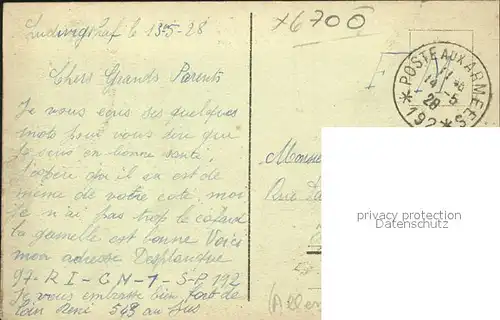 Ludwigshaf le 13-5-28
Chers Grands Parents
Je vous écris ses quelques
mots pour vous dire que
je suis en bonne santé
J'espère qu'il en est de
même de votre coté, moi
Je n'ai pas trop le cafard
la gamelle est bonne Voici
mon adresse Desplanche
97-R I-CM-1-S-P, 192
Je vous embrasse bien fort de
loin René 543 au jus
x6700
F M
POSTE AUX ARMEES
14-5
28
*192*
Monsieur
Rue
privacy protection
Datenschutz